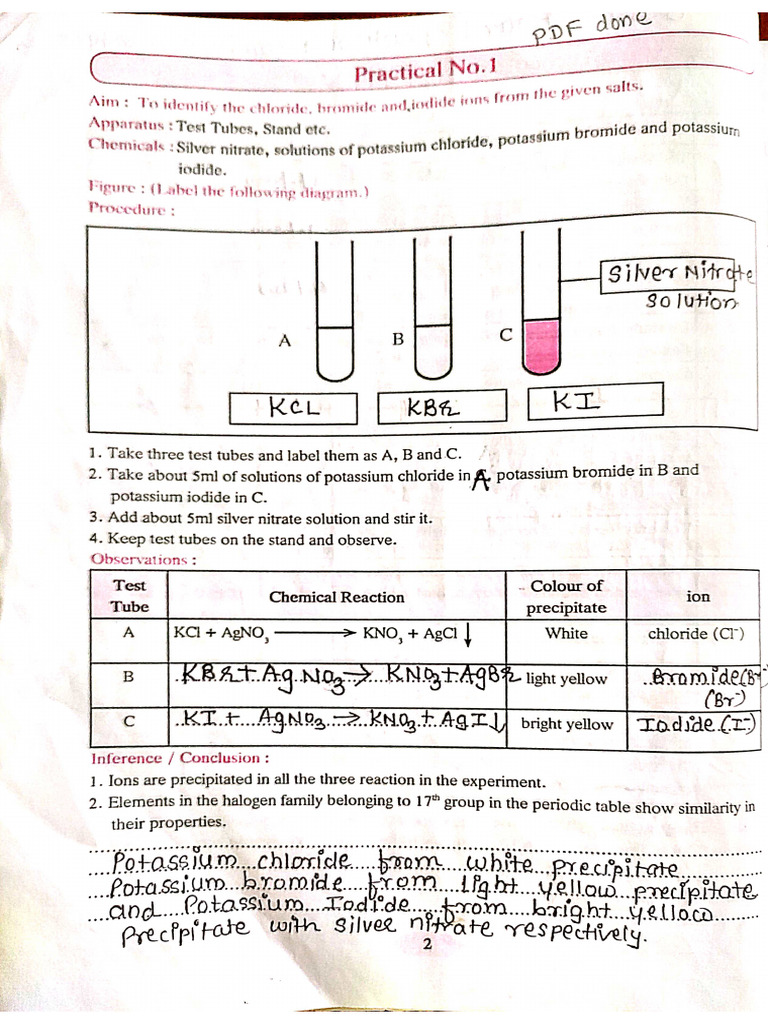 PDF done
Practical No.1
Aim : To identify the chloride, bromide and iodide ions from the given salts.
Apparatus : Test Tubes, Stand etc.
Chemicals : Silver nitrate, solutions of potassium chloride, potassium bromide and potassium
iodide.
Figure : (Label the following diagram.)
Procedure :
Silver Nitrate
solution
A B C
KCL KBr KI
1. Take three test tubes and label them as A, B and C.
2. Take about 5ml of solutions of potassium chloride in A, potassium bromide in B and
potassium iodide in C.
3. Add about 5ml silver nitrate solution and stir it.
4. Keep test tubes on the stand and observe.
Observations :
Test Tube | Chemical Reaction | Colour of precipitate | ion
A | KCl + AgNO₃ ⟶ KNO₃ + AgCl ↓ | White | chloride (Cl⁻)
B | KBr + AgNO₃ → KNO₃ + AgBr | light yellow | Bromide (Br⁻)
(Br⁻)
C | KI + AgNO₃ → KNO₃ + AgI ↓ | bright yellow | Iodide (I⁻)
Inference / Conclusion :
1. Ions are precipitated in all the three reaction in the experiment.
2. Elements in the halogen family belonging to 17th group in the periodic table show similarity in
their properties.
Potassium chloride from white precipitate
Potassium bromide from light yellow precipitate
and Potassium Iodide from bright yellow
Precipitate with silver nitrate respectively.
2